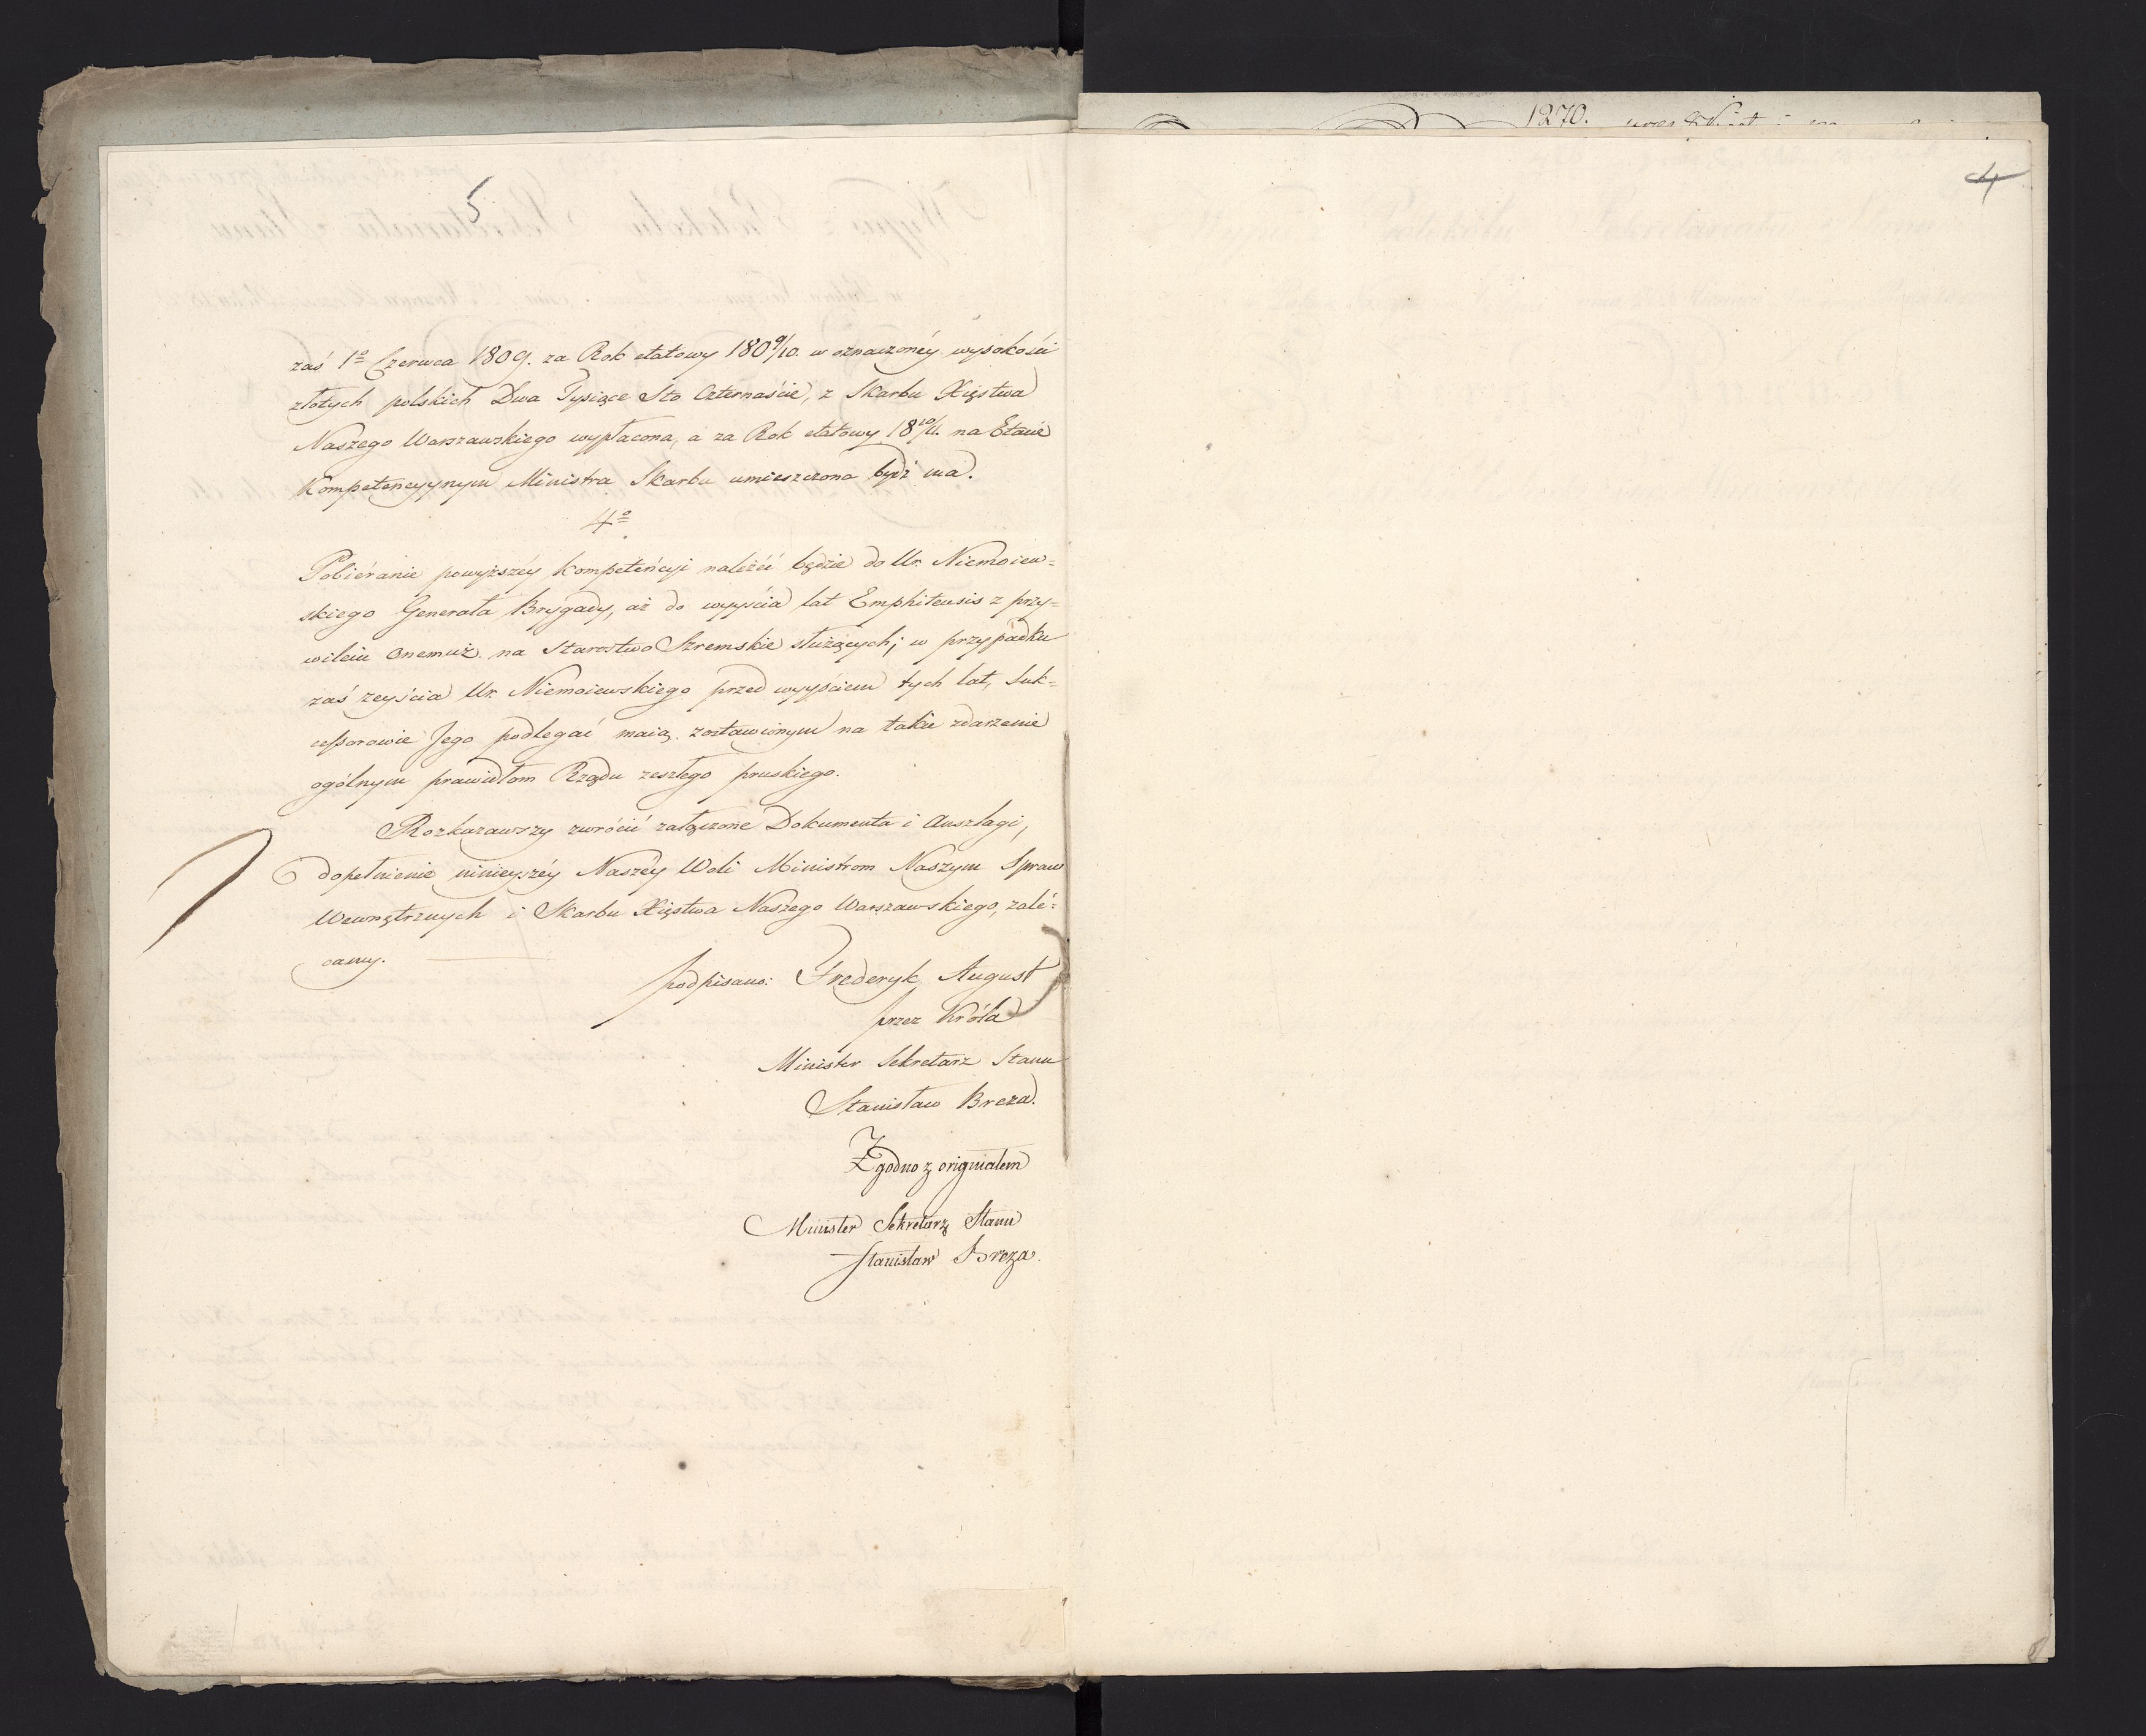 5
zaś 1o Czerwca 1809. za Rok etatowy 1809/10. w oznaczonéy wysokości
złotych polskich Dwa Tysiące Sto Czternaście, z Skarbu Xięstwa
Naszego Warszawskiego wypłacona, a za Rok etatowy 1810/11. na Etacie
Kompetencyynym Ministra Skarbu umieszczona bydź ma.
4o
Pobiéranie powyższéy kompetencyi należéć będzie do Ur. Niemoiew=
skiego Generała Brygady, aż do wyyścia lat Emphiteusis z przy=
wileiu onemuż na Starostwo Szremskie służących; w przypadku
zaś zeyścia Ur. Niemoiewskiego przed wyyściem tych lat, Suk=
cessorowie Jego podlegać maią zostawionym na takie zdarzenie
ogólnym prawidłom Rządu zeszłego pruskiego.
Rozkazawszy zwrócić załączone Dokumenta i Anszlagi,
dopełnienie ninieyszéy Naszéy Woli Ministrom Naszym Spraw
Wewnętrznych i Skarbu Xięstwa Naszego Warszawskiego, zalé=
camy.
podpisano: Frederyk August
przez Króla
Minister Sekretarz Stanu
Stanisław Breza.
Zgodno z originałem
Minister Sekretarz Stanu
Stanisław Breza.
1270.
4